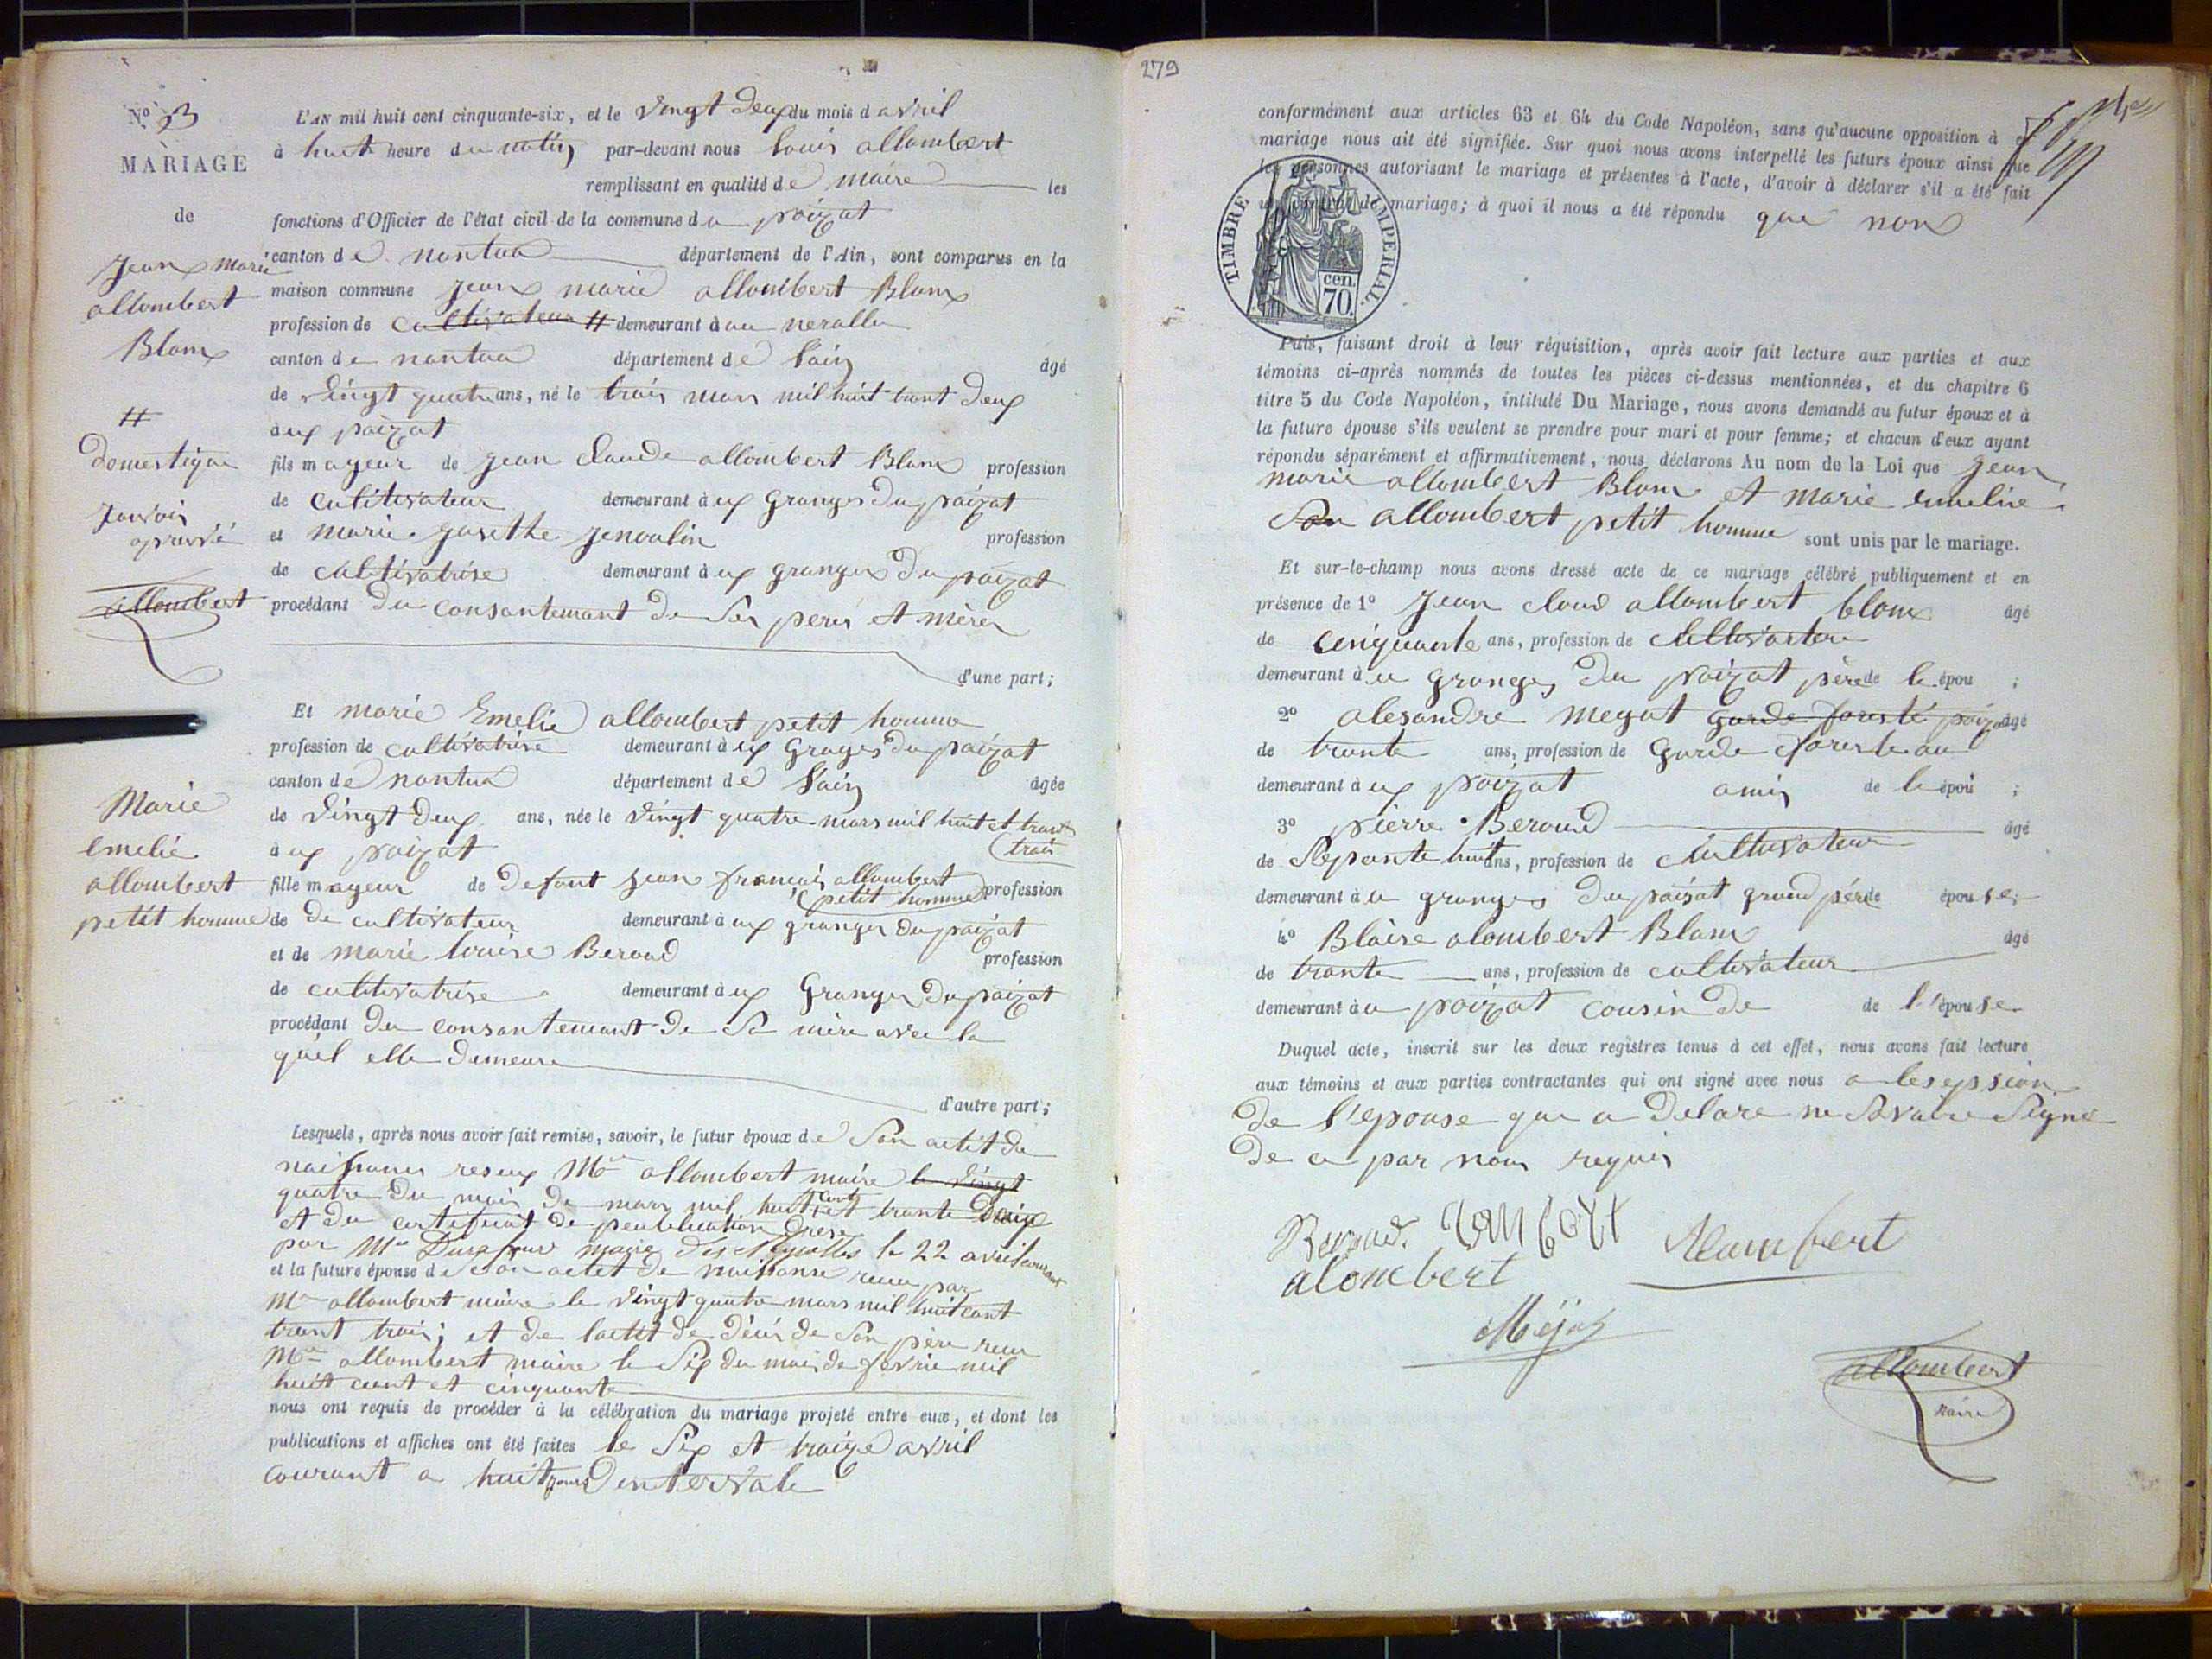 N° 3
MARIAGE
de
Jean marie
allombert
Blanc
#
domestique
renvoi
aprouvé
allombert
Marie
emelie
allombert
petit homme
L'AN mil huit cent cinquante-six, et le vingt deux du mois d avril
à huit heure du matin par-devant nous louis allombert
remplissant en qualité de maire les
fonctions d'Officier de l'état civil de la commune du poizat
canton de nantua département de l'Ain, sont comparus en la
maison commune jean marie allombert Blanc
profession de cultivateur # demeurant à au nerolle
canton de nantua département de lain âgé
de vingt quatre ans, né le trois mars mil huit trent deux
aux poizat
fils mageur de jean claude allombert Blanc profession
de cultivateur demeurant à ux granges du poizat
et marie josethe jenoulin profession
de cultivatrise demeurant à ux granges du poizat
procédant du consantemant de ses peres et mères
d'une part;
Et marie Emelie allombert petit homme
profession de cultivatrise demeurant à ux grages du poizat
canton de nantua département de l'ain âgée
de vingt deux ans, née le vingt quatre mars mil huit et trant
trois
à ux poizat
fille mageur de defont jean françois allombert
petit homme profession
de de cultivateur demeurant à ux granges du poizat
et de marie louise Beroud profession
de cultivatrise demeurant à ux Granges du poizat
procédant du consantemant de sa mère avec la
quél elle demeure
d'autre part;
Lesquels, après nous avoir fait remise, savoir, le futur époux de son actét de
naissances reseux Mr allombert maire le vingt
quatre du mois de mars mil huit cent et trante deuxe
et du certificat de peublication drese
par Mr Dufour maire des Neyrolles le 22 avril courant
et la future épouse de son actet de naissanse recu par
Mr allombert maire le vingt quatre mars mil huit cant
trant trois; et de lactét de décès de son père recu
Mr allombert maire le six du mois de fevrie mil
huit cent et cinquante
nous ont requis de procéder à la célébration du mariage projeté entre eux, et dont les
publications et affiches ont été faites le six et traize avril
courant a huit jours d'intervale
279
conformément aux articles 63 et 64 du Code Napoléon, sans qu'aucune opposition à ce
mariage nous ait été signifiée. Sur quoi nous avons interpellé les futurs époux ainsi que
les personnes autorisant le mariage et présentes à l'acte, d'avoir à déclarer s'il a été fait
un contrat de mariage; à quoi il nous a été répondu que non
TIMBRE IMPERIAL.
cen.
70.
Puis, faisant droit à leur réquisition, après avoir fait lecture aux parties et aux
témoins ci-après nommés de toutes les pièces ci-dessus mentionnées, et du chapitre 6
titre 5 du Code Napoléon, intitulé Du Mariage, nous avons demandé au futur époux et à
la future épouse s'ils veulent se prendre pour mari et pour femme; et chacun d'eux ayant
répondu séparément et affirmativement, nous déclarons Au nom de la Loi que jean
marie allombert Blanc et marie emeline
son allombert petit homme sont unis par le mariage.
Et sur-le-champ nous avons dressé acte de ce mariage célébré publiquement et en
présence de 1° Jean cloud allombert blanc âgé
de cenquante ans, profession de cultivateur
demeurant à u granges du poizat père de le épou ;
2° alesandre megat garde foresté poiz âgé
de trante ans, profession de Garde foresteau
demeurant à ux poizat amis de le épou ;
3° pierre Beroud âgé
de sepante huit ans, profession de cultivateur
demeurant à u granges du poizat grand père de épouse;
4° Blaise alombert Blanc âgé
de trante ans, profession de cultivateur
demeurant à u poizat cousin de de l'épouse
Duquel acte, inscrit sur les deux registres tenus à cet effet, nous avons fait lecture
aux témoins et aux parties contractantes qui ont signé avec nous a lesepsion
de l'epouse que a delare ne savaire signe
de ce par nous requis
Beroud. Allombert
alombert
Méjat
allombert
maire